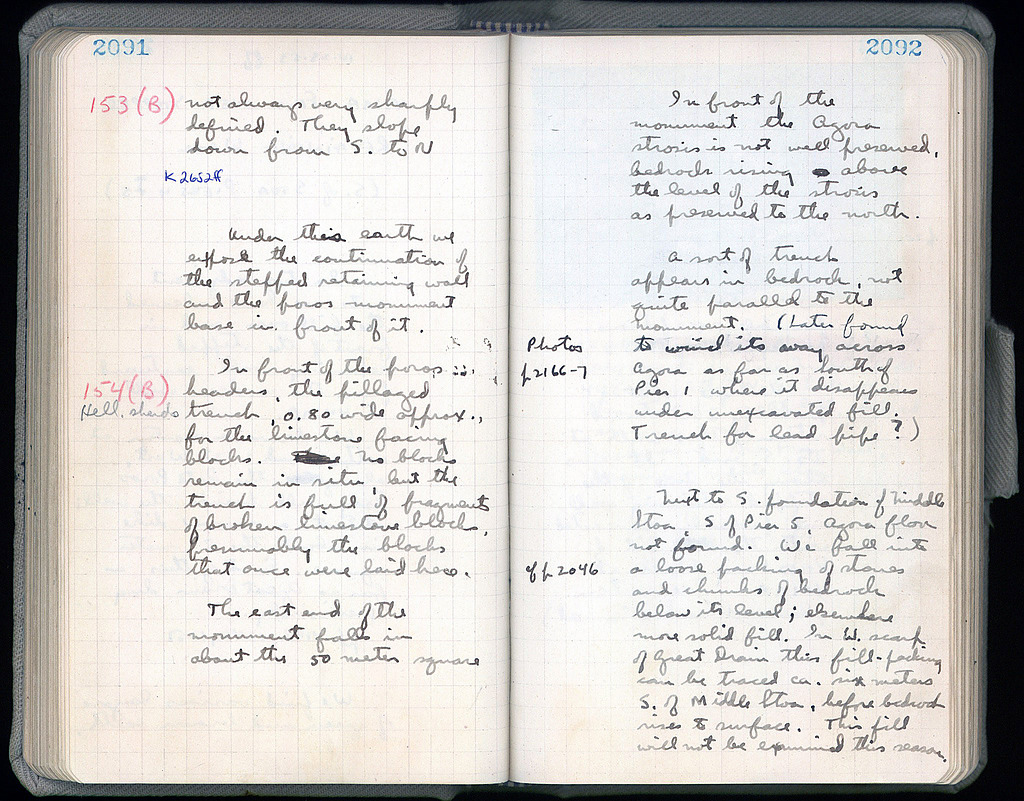 2091
153 (B) not always very sharply
defined. They slope
down from S. to N
K 2652ff
Under this earth we
expose the continuation of
the stepped retaining wall
and the poros monument
base in front of it.
In front of the poros
154 (B) headers, the pillaged
Hell. sherds trench, 0.80 wide approx.,
for the limestone facing
blocks. No blocks
remain in situ, but the
trench is full of fragments
of broken limestone blocks,
presumably the blocks
that once were laid here.
The east end of the
monument falls in
about the 50 meter square
2092
In front of the
monument the Agora
strosis is not well preserved,
bedrock rising above
the level of the strosis
as preserved to the north.
A sort of trench
appears in bedrock, not
quite parallel to the
monument. (Later found
Photos to wind its way across
p 2166-7 Agora as far as South of
Pier 1 where it disappears
under unexcavated fill.
Trench for lead pipe?)
Next to S. foundation of Middle
Stoa, S of Pier 5, Agora floor
not found. We fall into
cf p. 2046 a loose packing of stones
and chunks of bedrock
below its level; elsewhere
more solid fill. In W. scarp
of Great Drain this fill-packing
can be traced ca. six meters
S. of Middle Stoa, before bedrock
rises to surface. This fill
will not be examined this season.